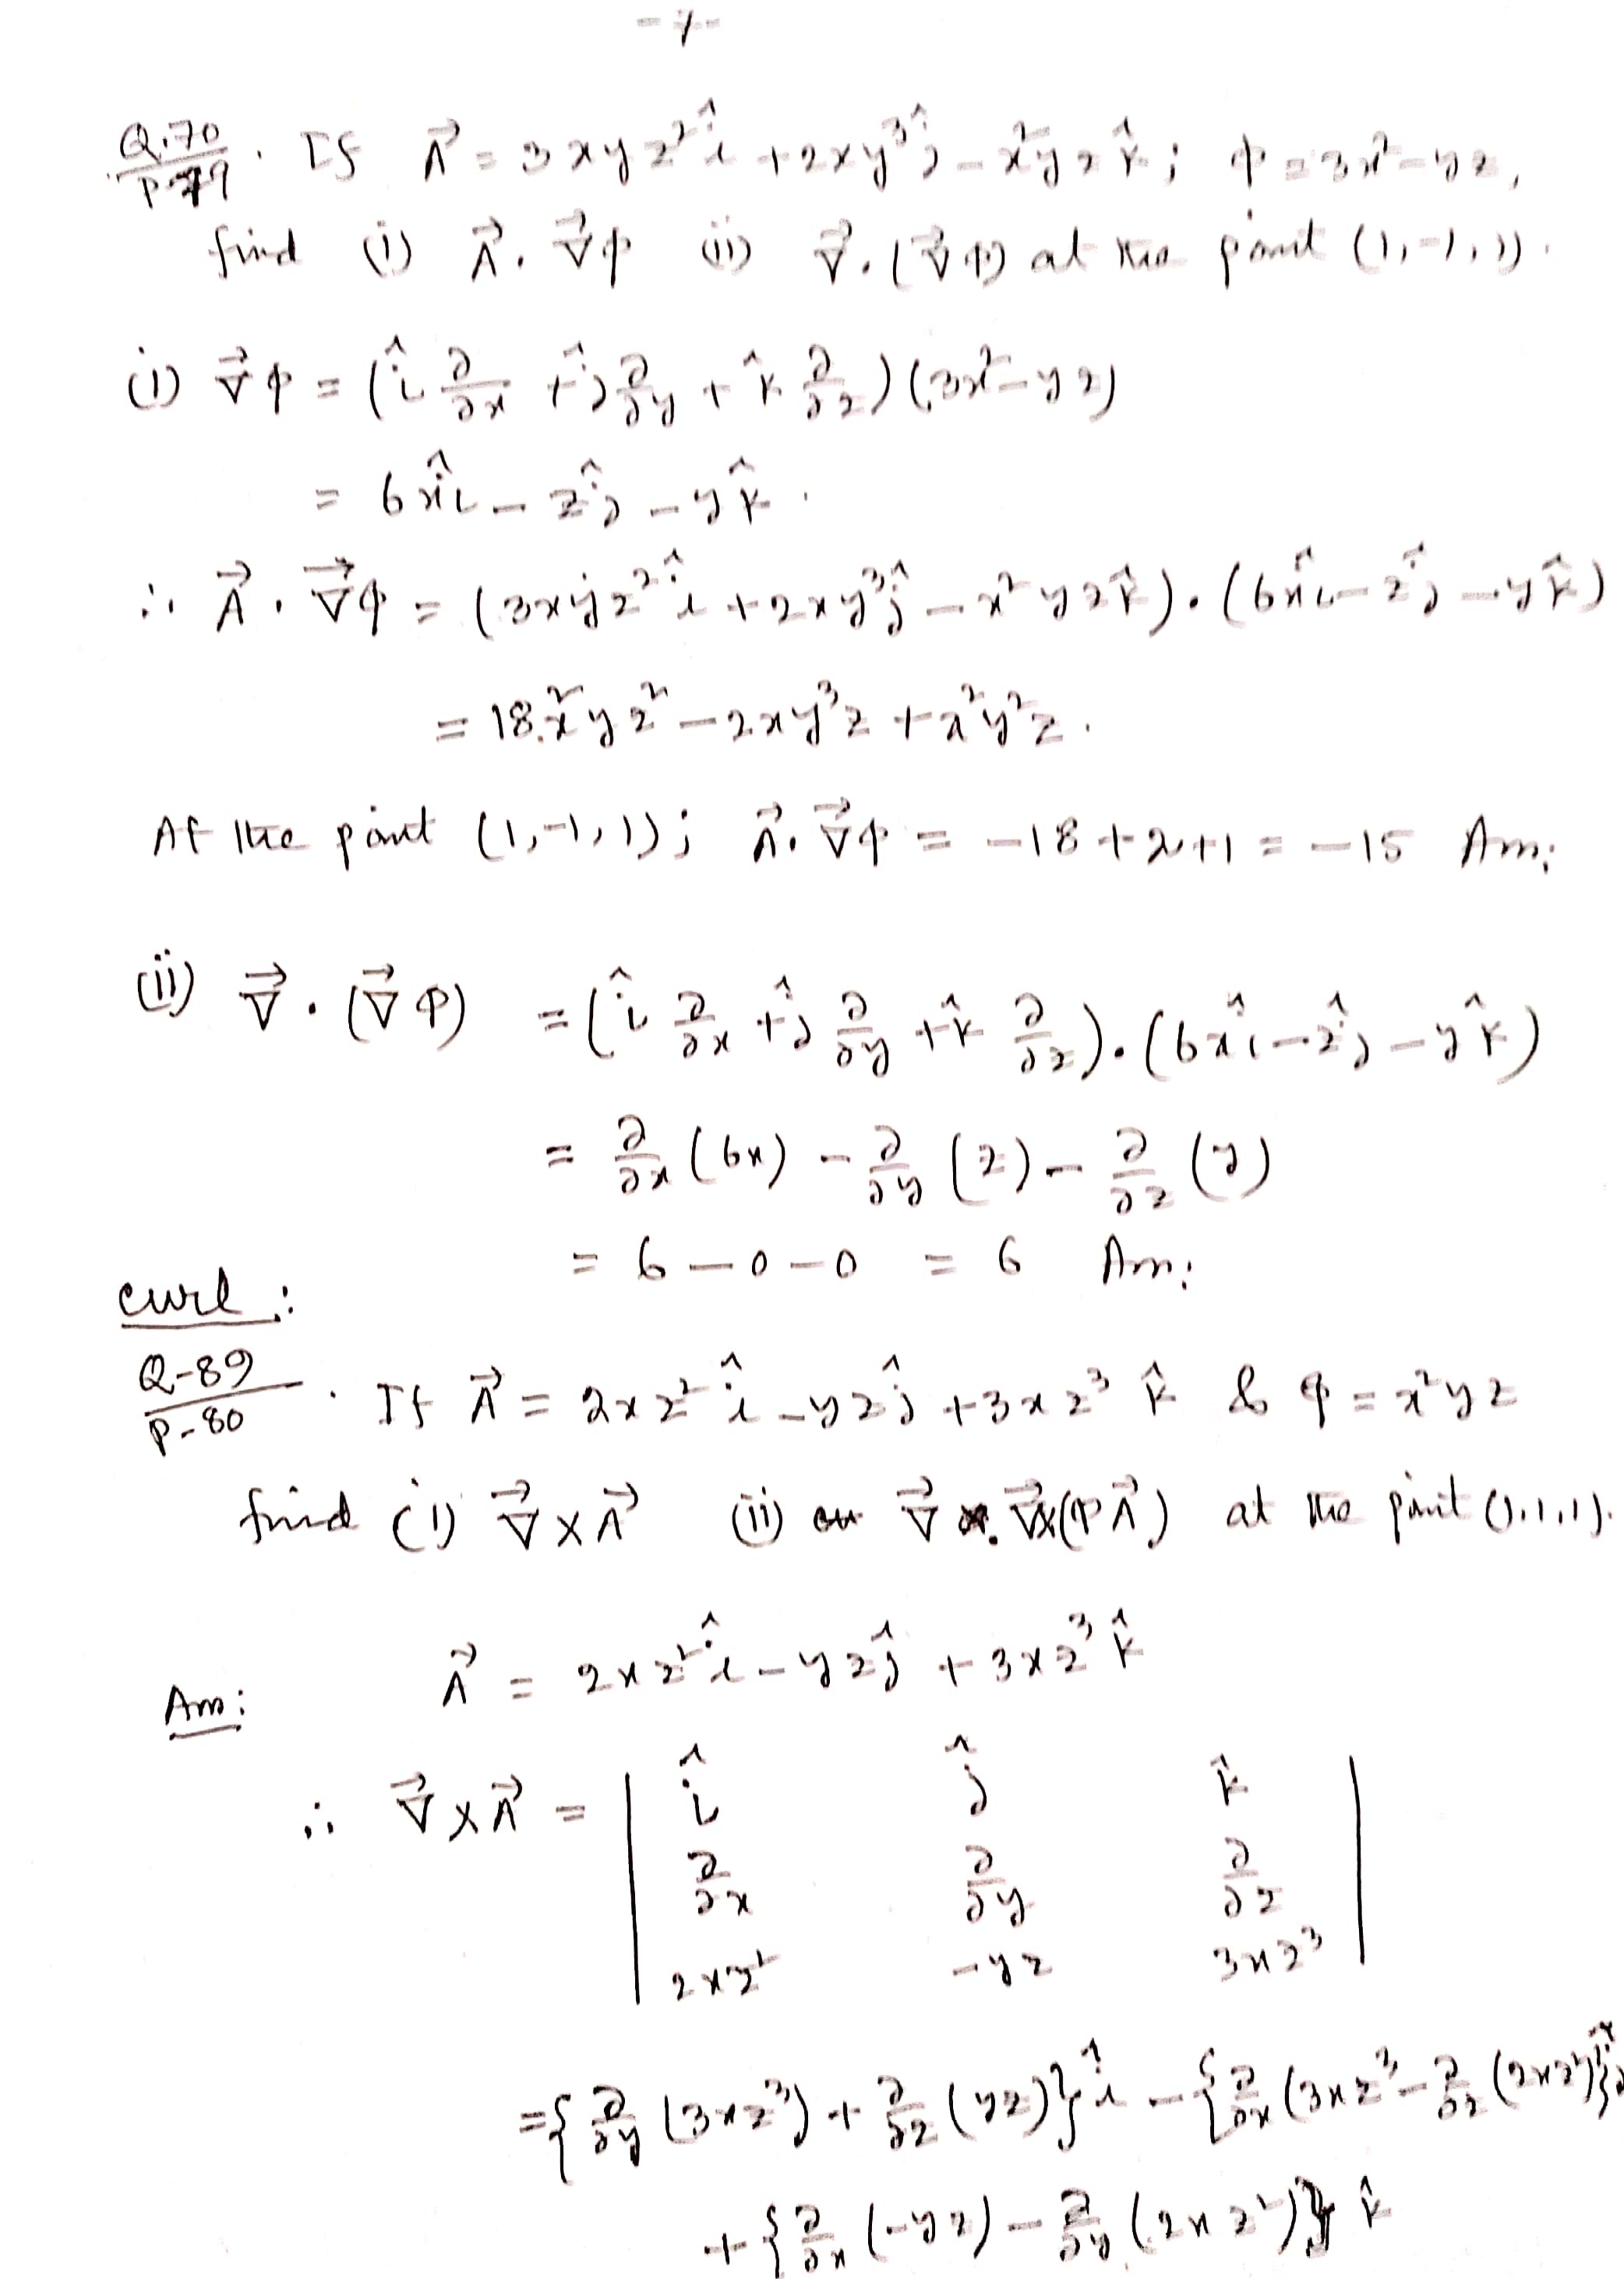 -7-
Q.70/P.79. If A⃗ = 3xyz² î + 2xy³ ĵ - x²yz k̂; φ = 3x² - yz,
find (i) A⃗ . ∇⃗φ (ii) ∇⃗.(∇⃗φ) at the point (1,-1,1).
(i) ∇⃗φ = (î ∂/∂x + ĵ ∂/∂y + k̂ ∂/∂z)(3x² - yz)
= 6x î - z ĵ - y k̂.
∴ A⃗ . ∇⃗φ = (3xyz² î + 2xy³ ĵ - x²yz k̂).(6x î - z ĵ - y k̂)
= 18x²yz² - 2xy³z + x²y²z.
At the point (1,-1,1); A⃗.∇⃗φ = -18+2+1 = -15 Ans:
(ii) ∇⃗ . (∇⃗φ) = (î ∂/∂x + ĵ ∂/∂y + k̂ ∂/∂z).(6x î - z ĵ - y k̂)
= ∂/∂x (6x) - ∂/∂y (z) - ∂/∂z (y)
= 6-0-0 = 6 Ans:
curl:
Q-89/P-80. If A⃗ = 2xz² î - yz ĵ + 3xz³ k̂ & φ = x²yz
find (i) ∇⃗×A⃗ (ii) ∇⃗×(φA⃗) at the point (1,1,1).
Ans: A⃗ = 2xz² î - yz ĵ + 3xz³ k̂
∴ ∇⃗×A⃗ = | î ĵ k̂ |
∂/∂x ∂/∂y ∂/∂z
2xz² -yz 3xz³
= {∂/∂y (3xz³) + ∂/∂z (yz)} î - {∂/∂x (3xz³ - ∂/∂z (2xz²)} ĵ
+ {∂/∂x (-yz) - ∂/∂y (2xz²)} k̂